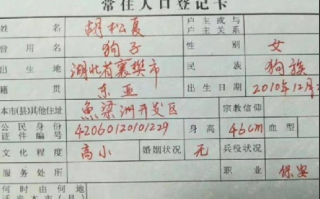 常住人口登记卡
姓名 胡松真 户主或与户主关系
曾用名 狗子 性别 女
出生地 湖北省襄樊市 民族 狗族
东亚 出生日期 2010年12月
本市(县)其他住址 鱼梁洲开发区 宗教信仰
公民身份证件编号 42060120101229 身高 46cm 血型
文化程度 高小 婚姻状况 无 兵役状况
服务处所 职业 保安
何时由何地